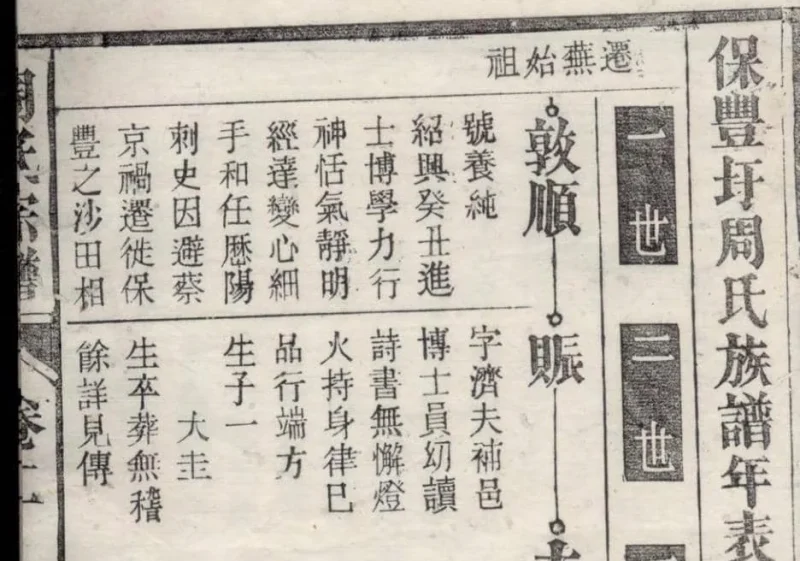 保豐圩周氏族譜年表
一世
二世
遷蕪始祖
敦順
號養純
紹興癸丑進
士博學力行
神恬氣靜明
經達變心細
手和任歷陽
刺史因避蔡
京禍遷徙保
豐之沙田相
賑
字濟夫補邑
博士員幼讀
詩書無懈燈
火持身律已
品行端方
生子一
大圭
生卒葬無稽
餘詳見傳
周氏宗譜
卷十